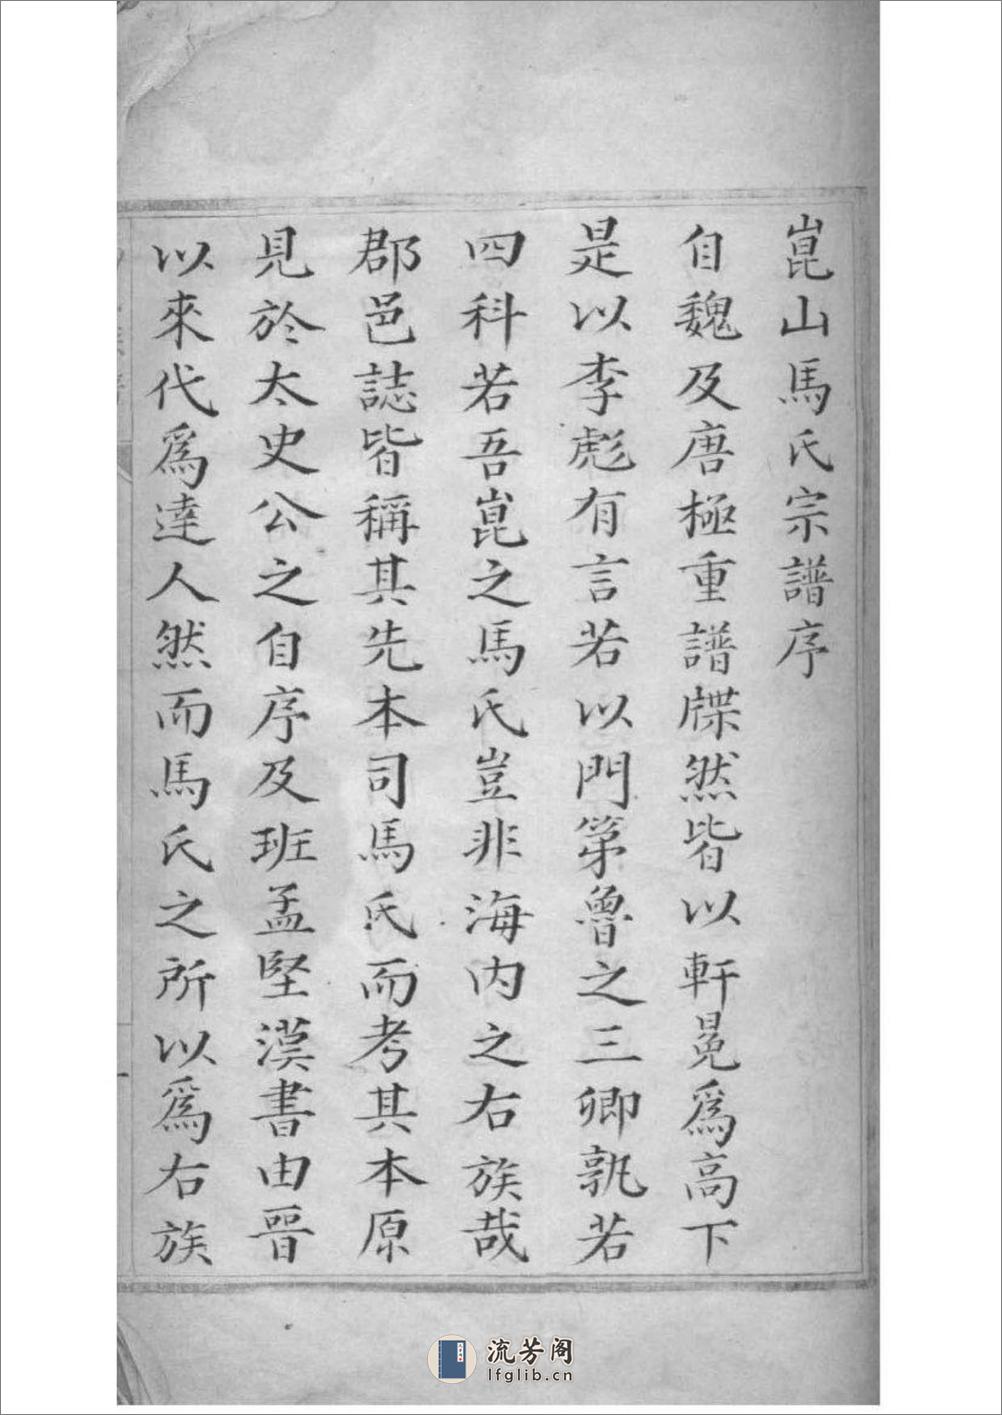 崑山馬氏宗譜序
自魏及唐極重譜牒然皆以軒冕爲高下
是以李彪有言若以門第魯之三卿孰若
四科若吾崑之馬氏豈非海内之右族哉
郡邑誌皆稱其先本司馬氏而考其本原
見於太史公之自序及班孟堅漢書由晉
以來代爲達人然而馬氏之所以爲右族
流芳阁
lfglib.cn